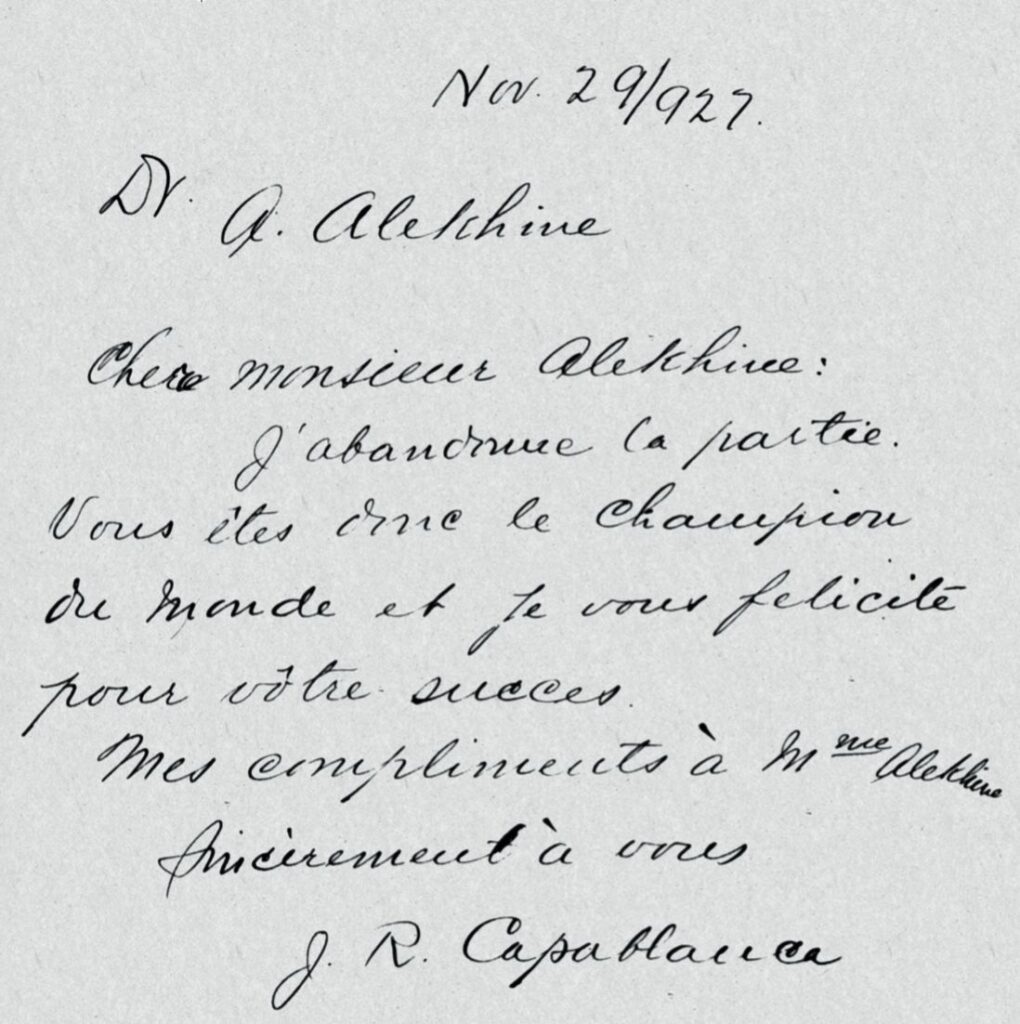 Nov. 29/927.
Dr. A. Alekhine
Cher monsieur Alekhine:
J'abandonne la partie.
Vous êtes donc le champion
du monde et je vous felicite
pour vôtre succes.
Mes compliments à Mme Alekhine
Sincèrement à vous
J. R. Capablanca